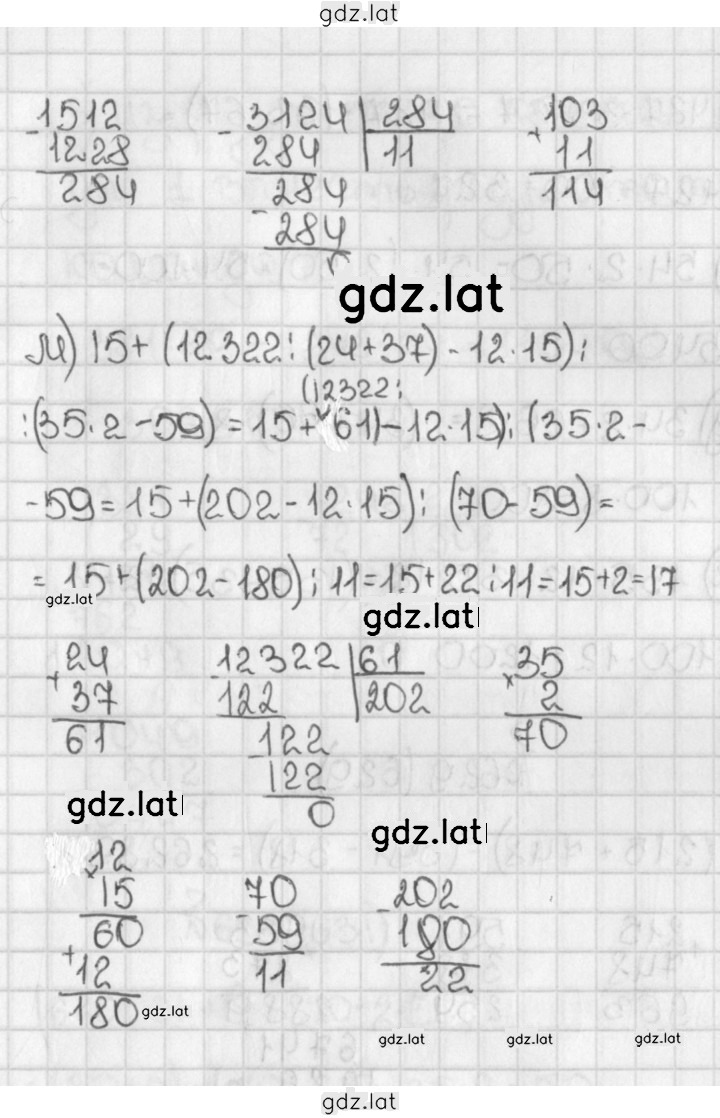 gdz.lat
1512 3124 284 103
- 1228 - 284 11 + 11
284 284 114
- 284
gdz.lat
м) 15+(12322:(24+37)-12·15):
(12322:
:(35·2-59)=15+61)-12·15):(35·2-
-59=15+(202-12·15):(70-59)=
=15+(202-180):11=15+22:11=15+2=17
gdz.lat
gdz.lat
24 12322 61 35
+ 37 - 122 202 × 2
61 122 70
- 122
gdz.lat 0
gdz.lat
12 70 202
× 15 - 59 - 180
60 11 22
+ 12
180 gdz.lat
gdz.lat gdz.lat gdz.lat
gdz.lat